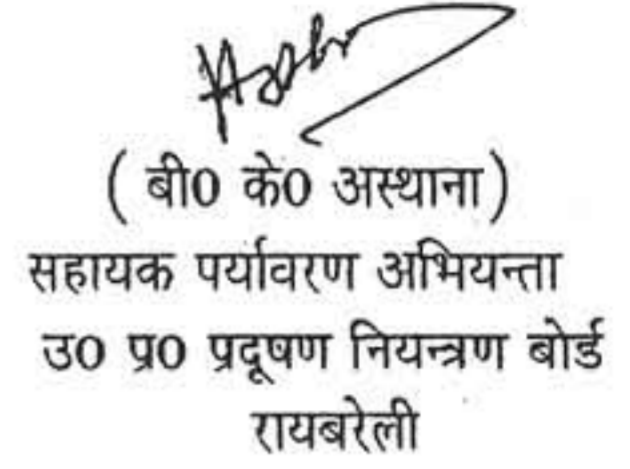 ( बी0 के0 अस्थाना )
सहायक पर्यावरण अभियन्ता
उ0 प्र0 प्रदूषण नियन्त्रण बोर्ड
रायबरेली